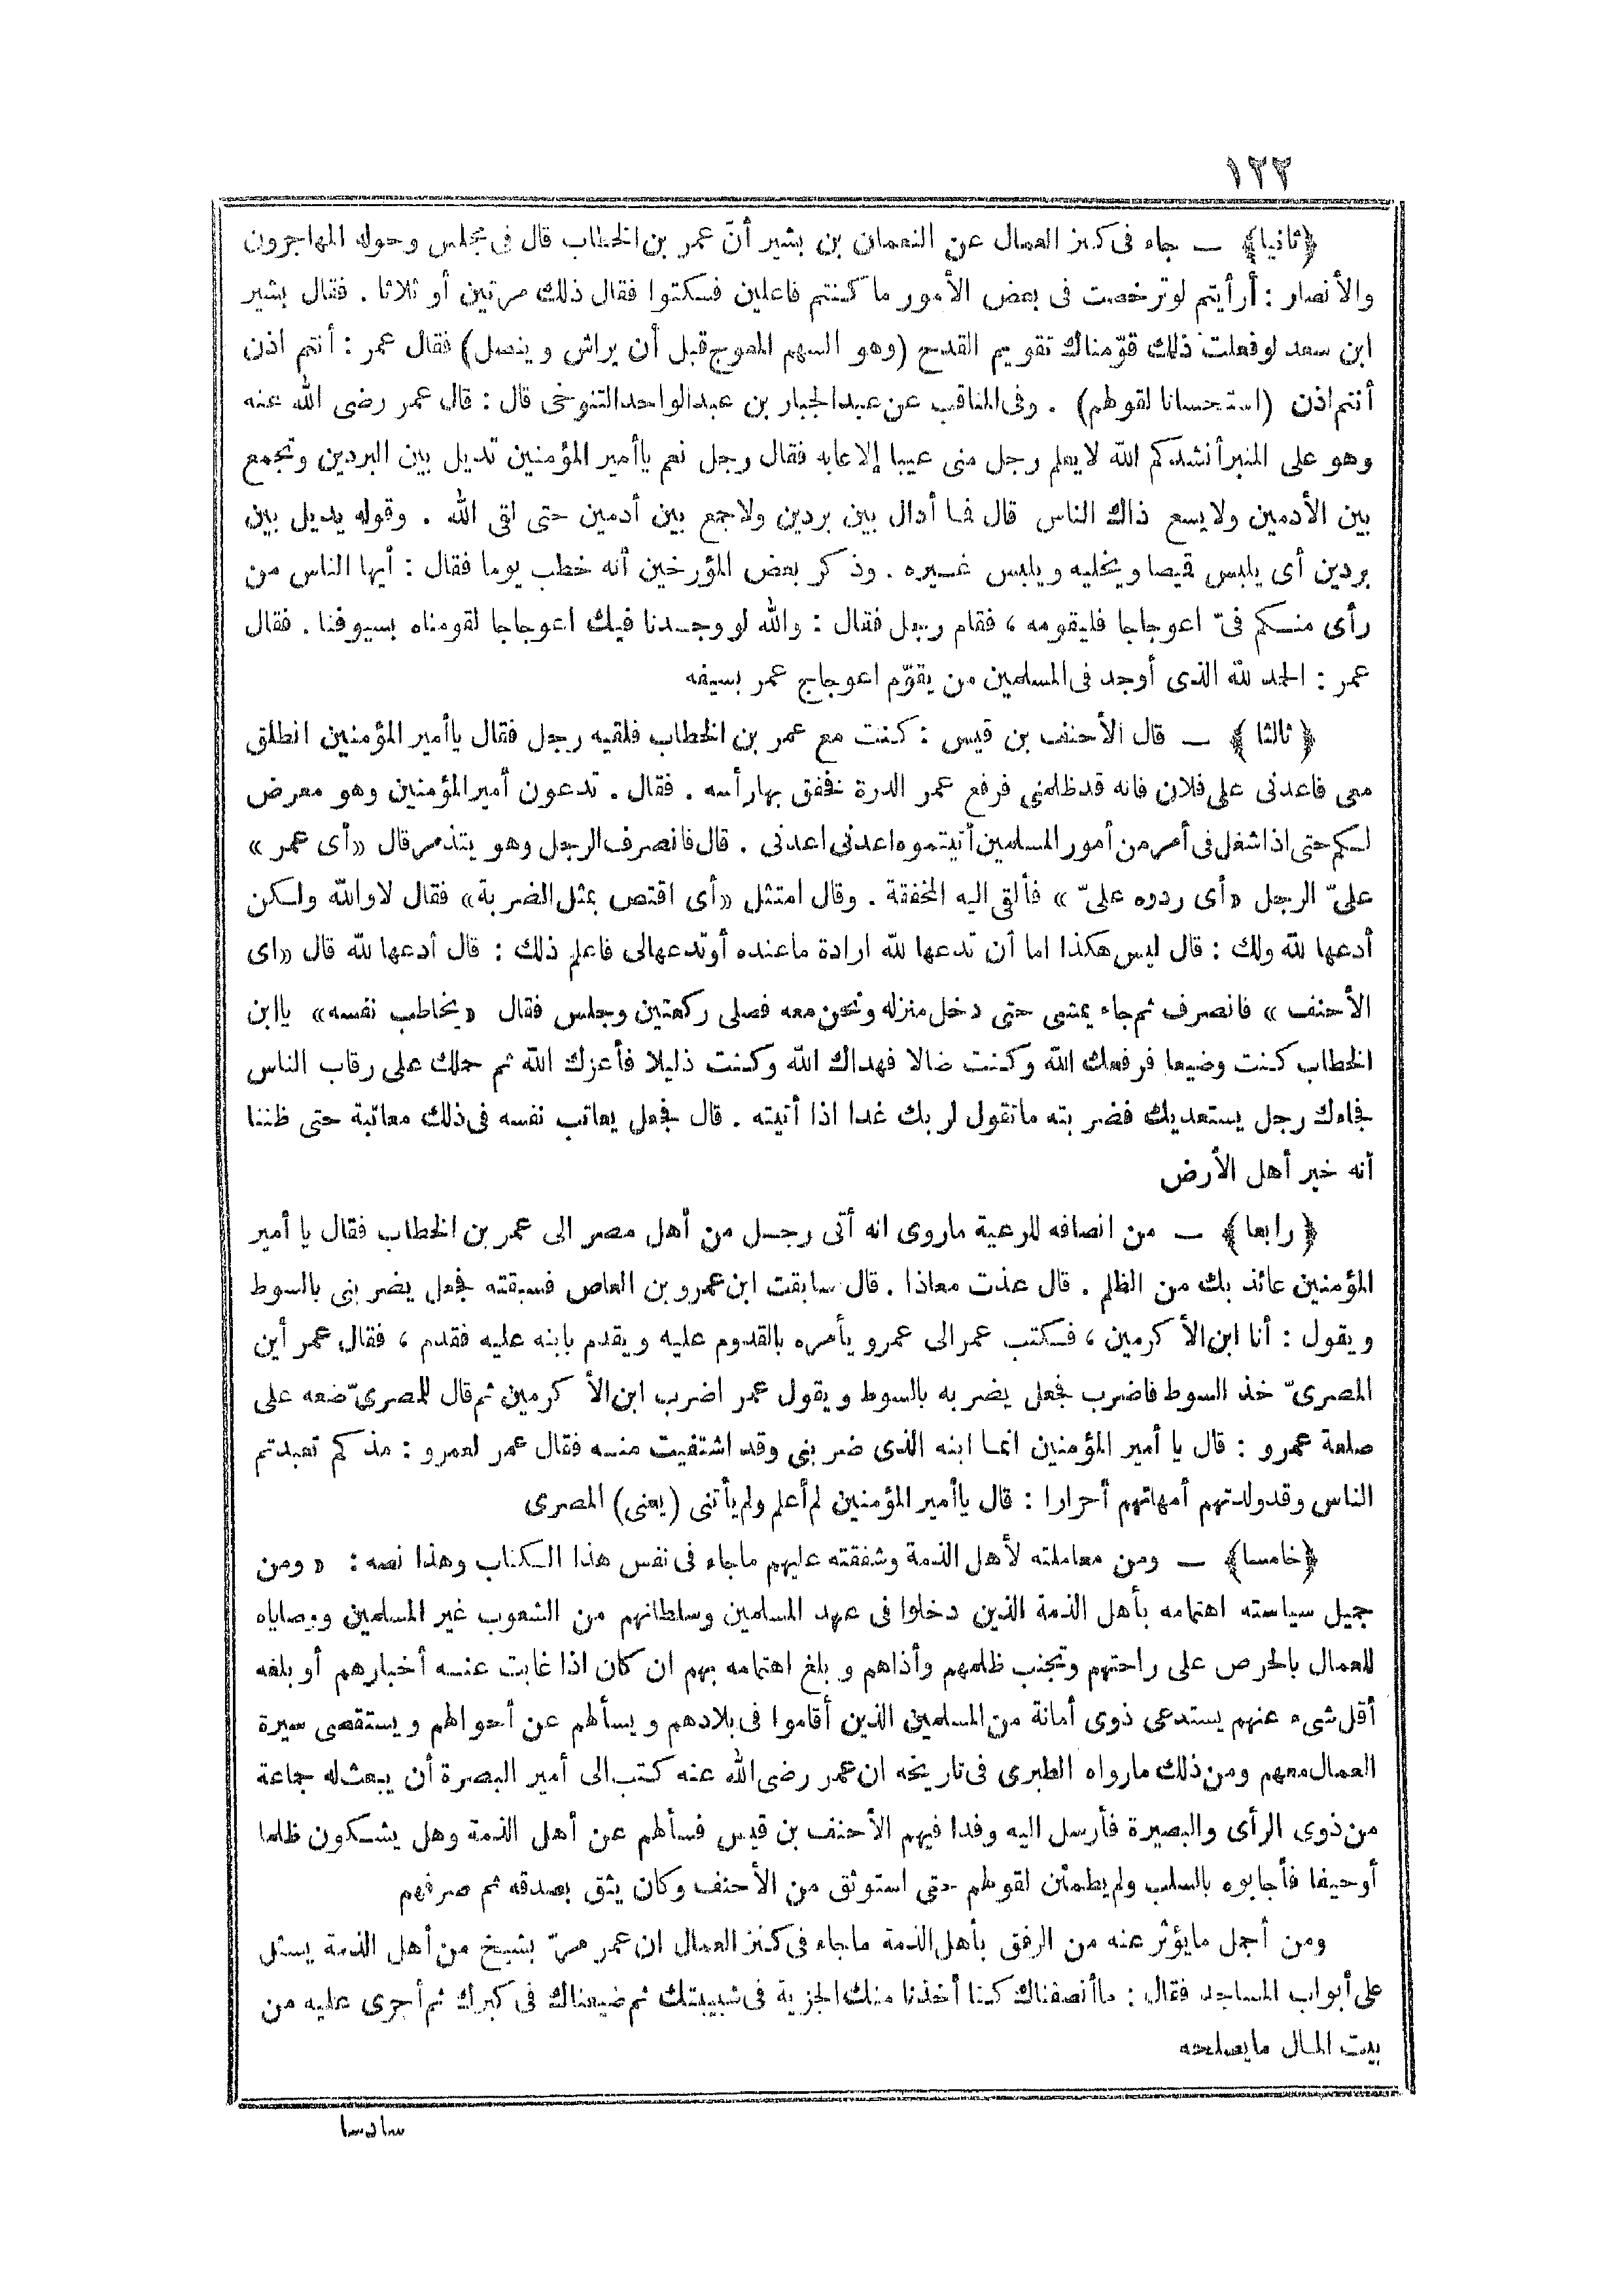 ١٢٢
﴿ثانيا﴾ ــ جاء فى كنز العمال عن النعمان بن بشير أنّ عمر بن الخطاب قال فى مجلس وحوله المهاجرون
والأنصار : أرأيتم لو ترخصت فى بعض الأمور ما كنتم فاعلين فسكتوا فقال ذلك مرتين أو ثلاثا . فقال بشير
ابن سعد لو فعلت ذلك قوّمناك تقويم القدح (وهو السهم المعوج قبل أن يراش وينصل) فقال عمر : أنتم اذن
أنتم اذن (استحسانا لقولهم) . وفى المناقب عن عبد الجبار بن عبد الواحد التنوخى قال : قال عمر رضى الله عنه
وهو على المنبر أنشدكم الله لا يعلم رجل منى عيبا إلا عابه فقال رجل نعم يا أمير المؤمنين تديل بين البردين وتجمع
بين الأدمين ولا يسع ذاك الناس قال فما أدال بين بردين ولا جمع بين أدمين حتى لقى الله . وقوله يديل بين
بردين أى يلبس قميصا ويخليه ويلبس غيره . وذكر بعض المؤرخين أنه خطب يوما فقال : أيها الناس من
رأى منكم فىّ اعوجاجا فليقومه ، فقام رجل فقال : والله لو وجدنا فيك اعوجاجا لقومناه بسيوفنا . فقال
عمر : الحمد لله الذى أوجد فى المسلمين من يقوّم اعوجاج عمر بسيفه
﴿ثالثا﴾ ــ قال الأحنف بن قيس : كنت مع عمر بن الخطاب فلقيه رجل فقال يا أمير المؤمنين انطلق
معى فاعدنى على فلان فانه قد ظلمنى فرفع عمر الدرة فخفق بها رأسه . فقال . تدعون أمير المؤمنين وهو معرض
لكم حتى اذا شغل فى أمر من أمور المسلمين أتيتموه اعدنى اعدنى . قال فانصرف الرجل وهو يتذمر قال «أى عمر»
علىّ الرجل «أى ردوه علىّ» فألقى اليه المخفقة . وقال امتثل «أى اقتص بمثل الضربة» فقال لا والله ولكن
أدعها لله ولك : قال ليس هكذا اما أن تدعها لله ارادة ما عنده أو تدعها لى فاعلم ذلك : قال أدعها لله قال «اى
الأحنف» فانصرف ثم جاء يمشى حتى دخل منزله ونحن معه فصلى ركعتين وجلس فقال «يخاطب نفسه» يا ابن
الخطاب كنت وضيعا فرفعك الله وكنت ضالا فهداك الله وكنت ذليلا فأعزك الله ثم حملك على رقاب الناس
فجاءك رجل يستعديك فضربته ما تقول لربك غدا اذا أتيته . قال فجعل يعاتب نفسه فى ذلك معاتبة حتى ظننا
أنه خير أهل الأرض
﴿رابعا﴾ ــ من انصافه للرعية ما روى انه أتى رجل من أهل مصر الى عمر بن الخطاب فقال يا أمير
المؤمنين عائذ بك من الظلم . قال عذت معاذا . قال سابقت ابن عمرو بن العاص فسبقته فجعل يضربنى بالسوط
ويقول : أنا ابن الأكرمين ، فكتب عمر الى عمرو يأمره بالقدوم عليه ويقدم بابنه عليه فقدم ، فقال عمر أين
المصرىّ خذ السوط فاضرب فجعل يضربه بالسوط ويقول عمر اضرب ابن الأكرمين ثم قال للمصرىّ ضعه على
صلعة عمرو : قال يا أمير المؤمنين انما ابنه الذى ضربنى وقد اشتفيت منه فقال عمر لعمرو : مذ كم تعبدتم
الناس وقد ولدتهم أمهاتهم أحرارا : قال يا أمير المؤمنين لم أعلم ولم يأتنى (يعنى) المصرى
﴿خامسا﴾ ــ ومن معاملته لأهل الذمة وشفقته عليهم ما جاء فى نفس هذا الكتاب وهذا نصه : «ومن
جميل سياسته اهتمامه بأهل الذمة الذين دخلوا فى عهد المسلمين وسلطانهم من الشعوب غير المسلمين ووصاياه
للعمال بالحرص على راحتهم وتجنب ظلمهم وأذاهم وبلغ اهتمامه بهم ان كان اذا غابت عنه أخبارهم أو بلغه
أقل شىء عنهم يستدعى ذوى أمانة من المسلمين الذين أقاموا فى بلادهم ويسألهم عن أحوالهم ويستقصى سيرة
العمال معهم ومن ذلك ما رواه الطبرى فى تاريخه ان عمر رضى الله عنه كتب الى أمير البصرة أن يبعث له جماعة
من ذوى الرأى والبصيرة فأرسل اليه وفدا فيهم الأحنف بن قيس فسألهم عن أهل الذمة وهل يشكون ظلما
أو حيفا فأجابوه بالسلب ولم يطمئن لقولهم حتى استوثق من الأحنف وكان يثق بصدقه ثم صرفهم
ومن أجمل ما يؤثر عنه من الرفق بأهل الذمة ما جاء فى كنز العمال ان عمر مرّ بشيخ من أهل الذمة يسئل
على أبواب المساجد فقال : ما أنصفناك كنا أخذنا منك الجزية فى شبيبتك ثم ضيعناك فى كبرك ثم أجرى عليه من
بيت المال ما يصلحه
سادسا